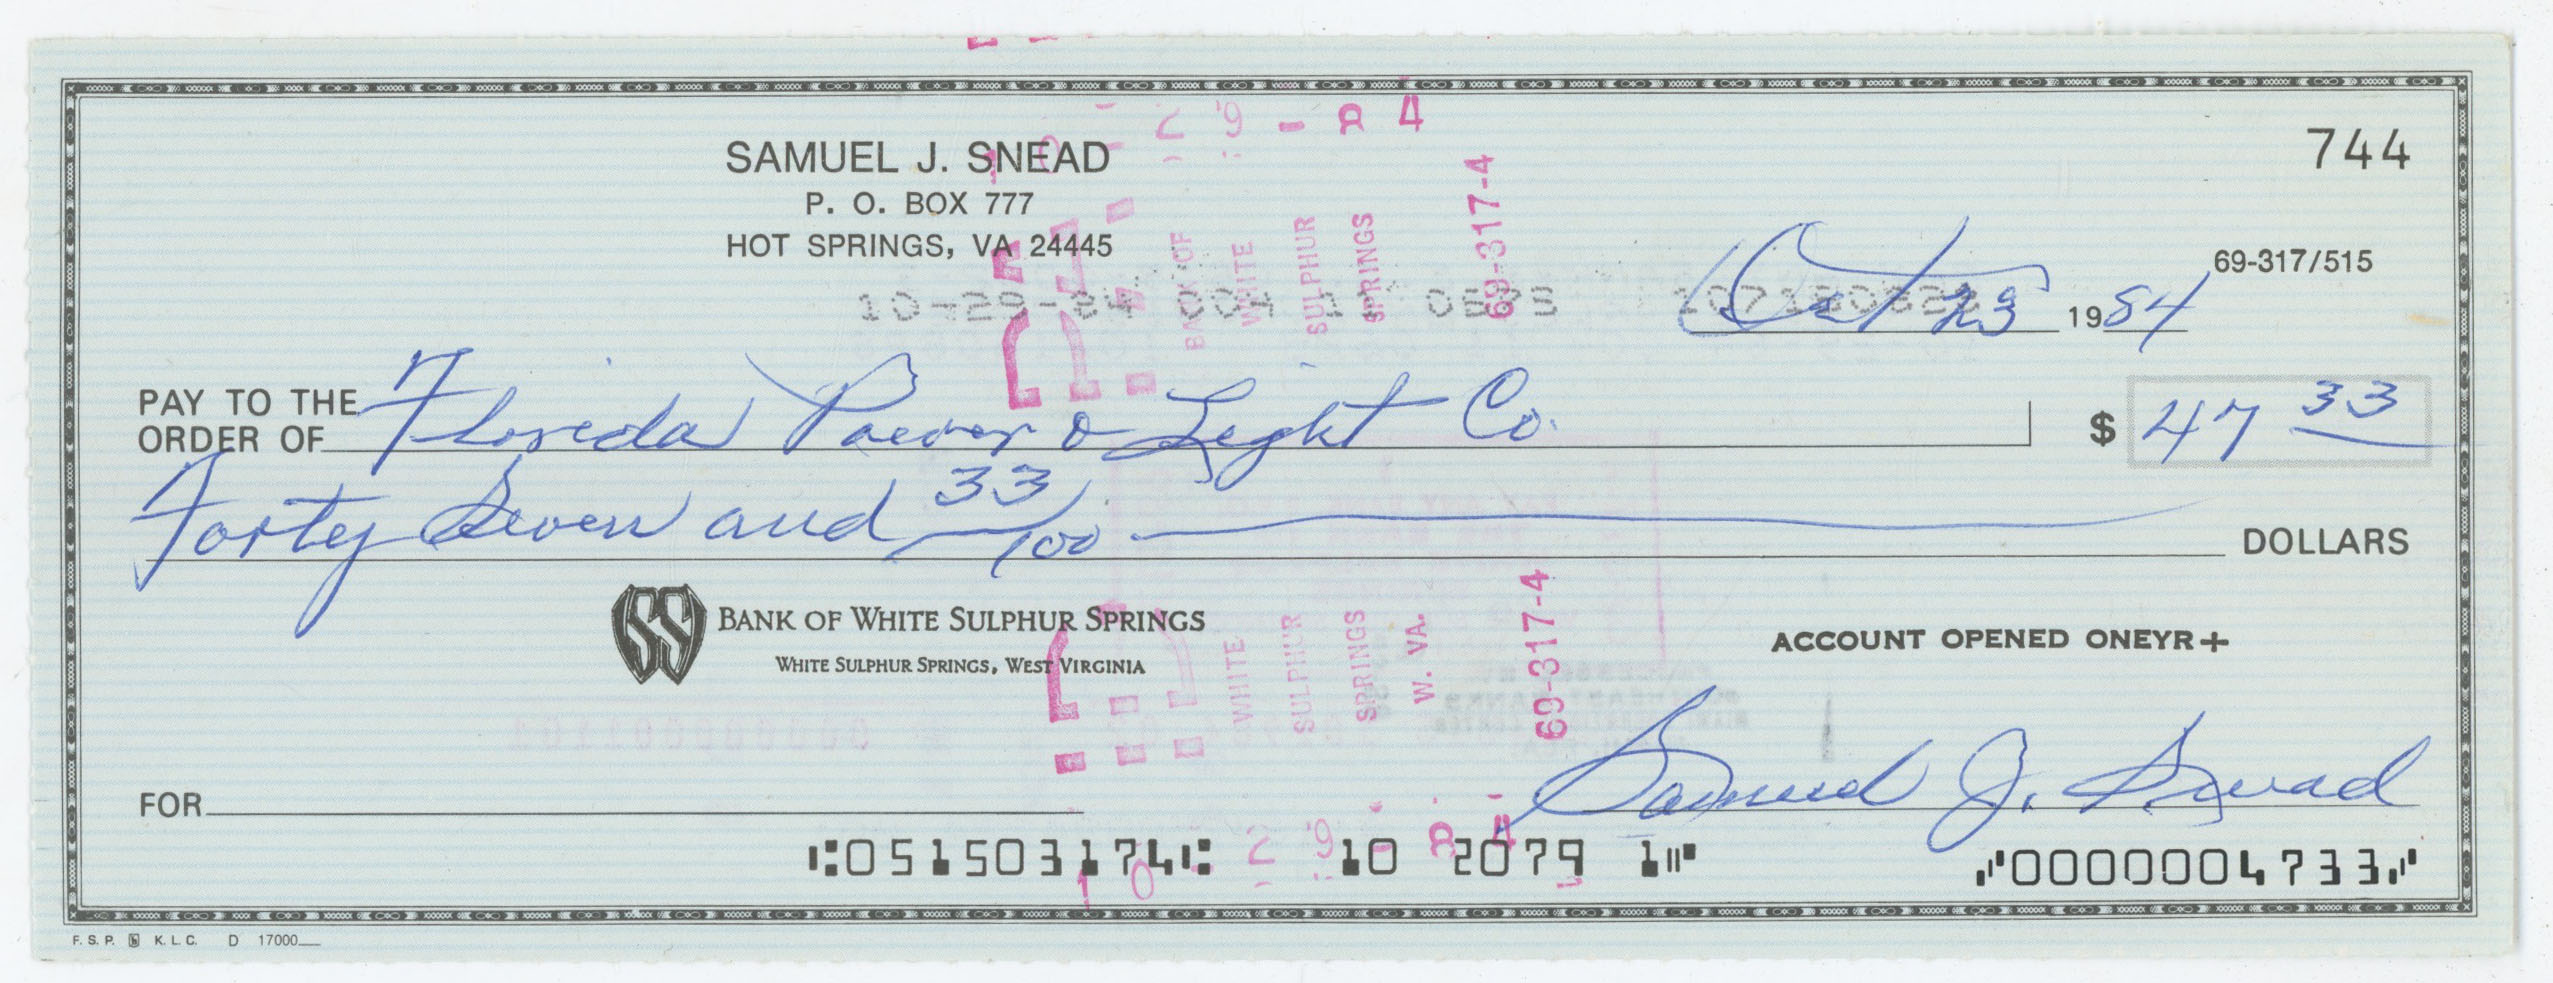 SAMUEL J. SNEAD
P. O. BOX 777
HOT SPRINGS, VA 24445
744
69-317/515
Oct 23 1984
PAY TO THE ORDER OF Florida Power & Light Co. $ 47 33
Forty Seven and 33/100 DOLLARS
BANK OF WHITE SULPHUR SPRINGS
WHITE SULPHUR SPRINGS, WEST VIRGINIA
ACCOUNT OPENED ONEYR+
FOR
Samuel J. Snead
⑆051503174⑆ 10 2079 1⑈ ⑈0000004733⑈
F. S. P. K. L. C. D 17000
BANK OF WHITE SULPHUR SPRINGS 69-317-4
WHITE SULPHUR SPRINGS W. VA. 69-317-4